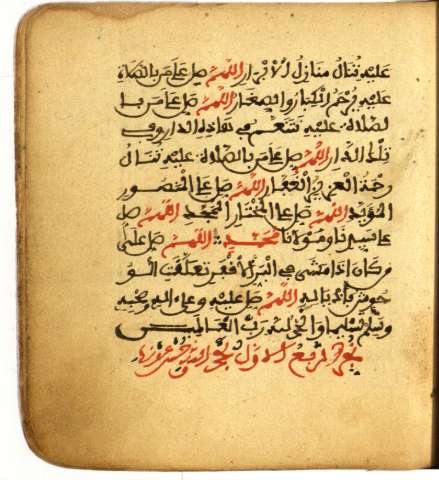 عليه تنال منازل الابرار اللهم صل على من بالصلاة
عليه يرحم الكبار والصغار اللهم صل على من با
لصلاة عليه نتنعم في هاذه الدار وفي
تلك الدار اللهم صل على من بالصلاة عليه تنال
رحمة العزيز الغفار اللهم صل على المنصور
المؤيد اللهم صل على المختار الممجد اللهم صل
على سيدنا ومولانا محمد اللهم صل على
من كان اذا مشى في البر الأقفر تعلقت الو
حوش بأذياله اللهم صل عليه وعلى اله وصحبه
وسلم تسليما والحمد لله رب العالمين
الربع الاول بحمد الله وحسن عونه